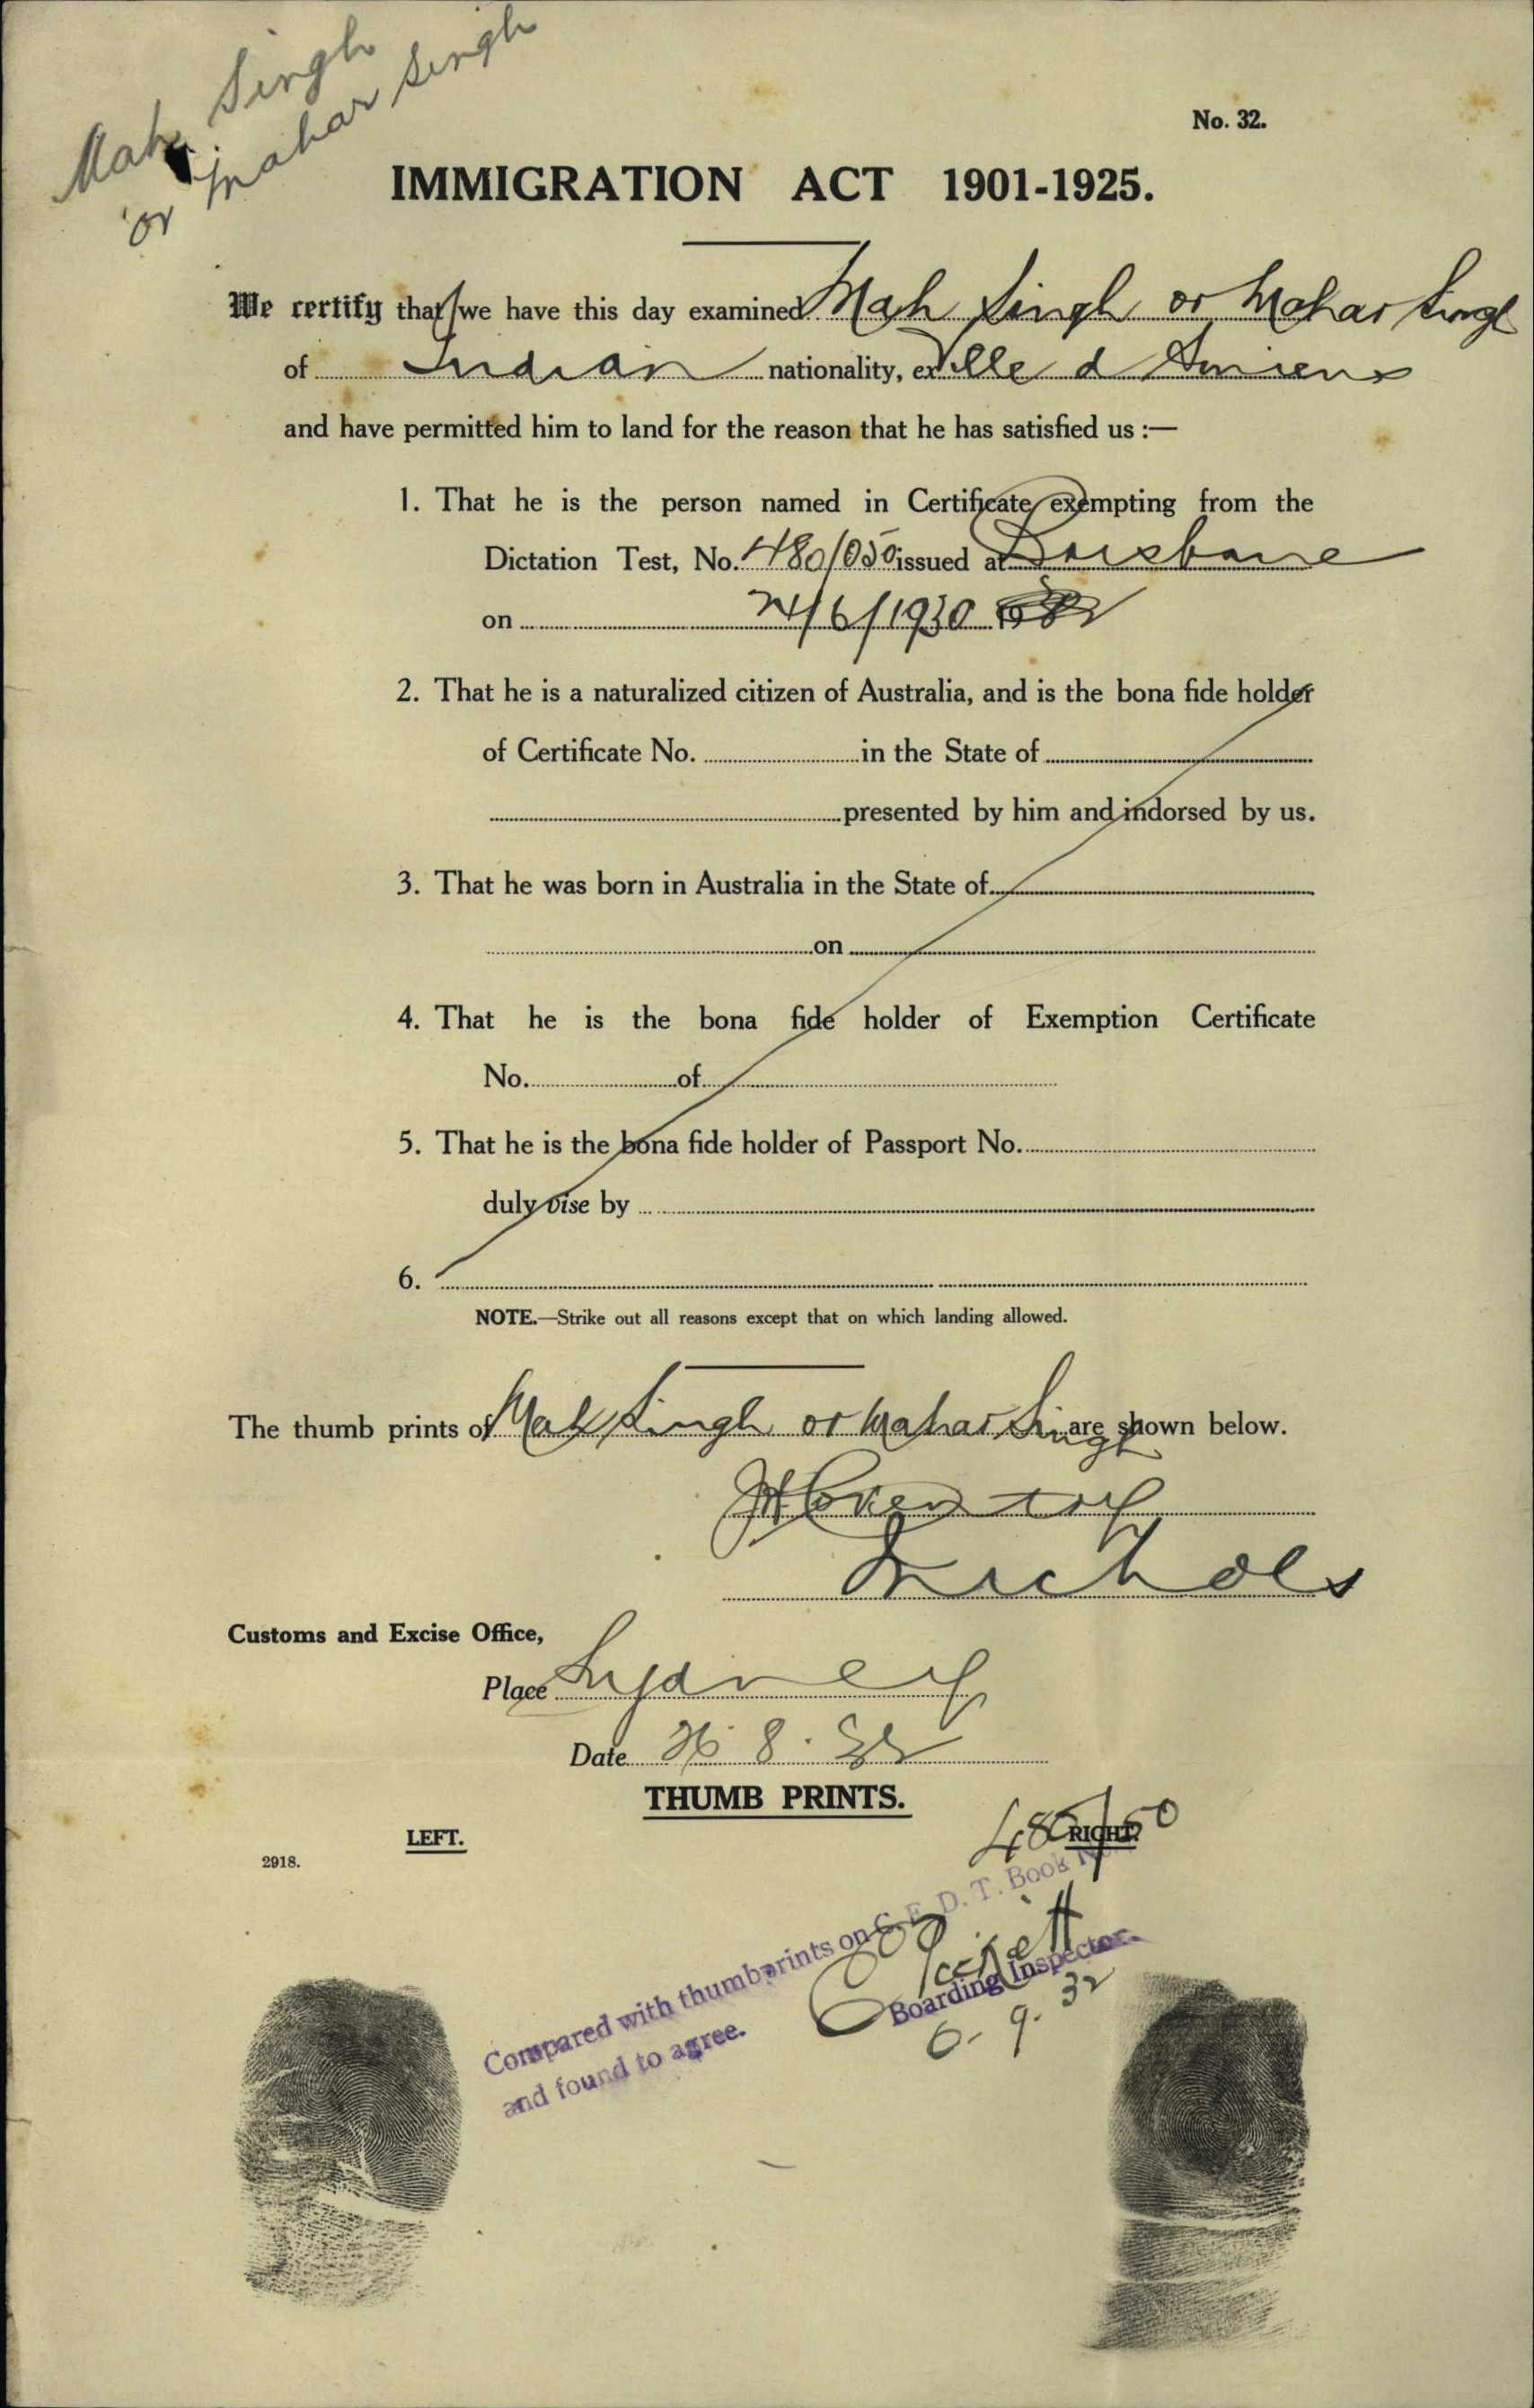 Mah Singh
or Mahar Singh
No. 32.
IMMIGRATION ACT 1901-1925.
We certify that we have this day examined Mah Singh or Mahar Singh
of Indian nationality, ex Ville d Amiens
and have permitted him to land for the reason that he has satisfied us :—
1. That he is the person named in Certificate exempting from the
Dictation Test, No. 480/050 issued at Brisbane
on 24/6/1930
2. That he is a naturalized citizen of Australia, and is the bona fide holder
of Certificate No. in the State of
presented by him and indorsed by us.
3. That he was born in Australia in the State of
on
4. That he is the bona fide holder of Exemption Certificate
No. of
5. That he is the bona fide holder of Passport No.
duly vise by
6.
NOTE.—Strike out all reasons except that on which landing allowed.
The thumb prints of Mah Singh or Mahar Singh are shown below.
Coventry
Nichols
Customs and Excise Office,
Place Sydney
Date 26.8.32
THUMB PRINTS.
LEFT.
RIGHT.
480/50
2918.
Compared with thumbprints on C. E. D. T. Book No.
and found to agree.
Boarding Inspector.
6-9.32